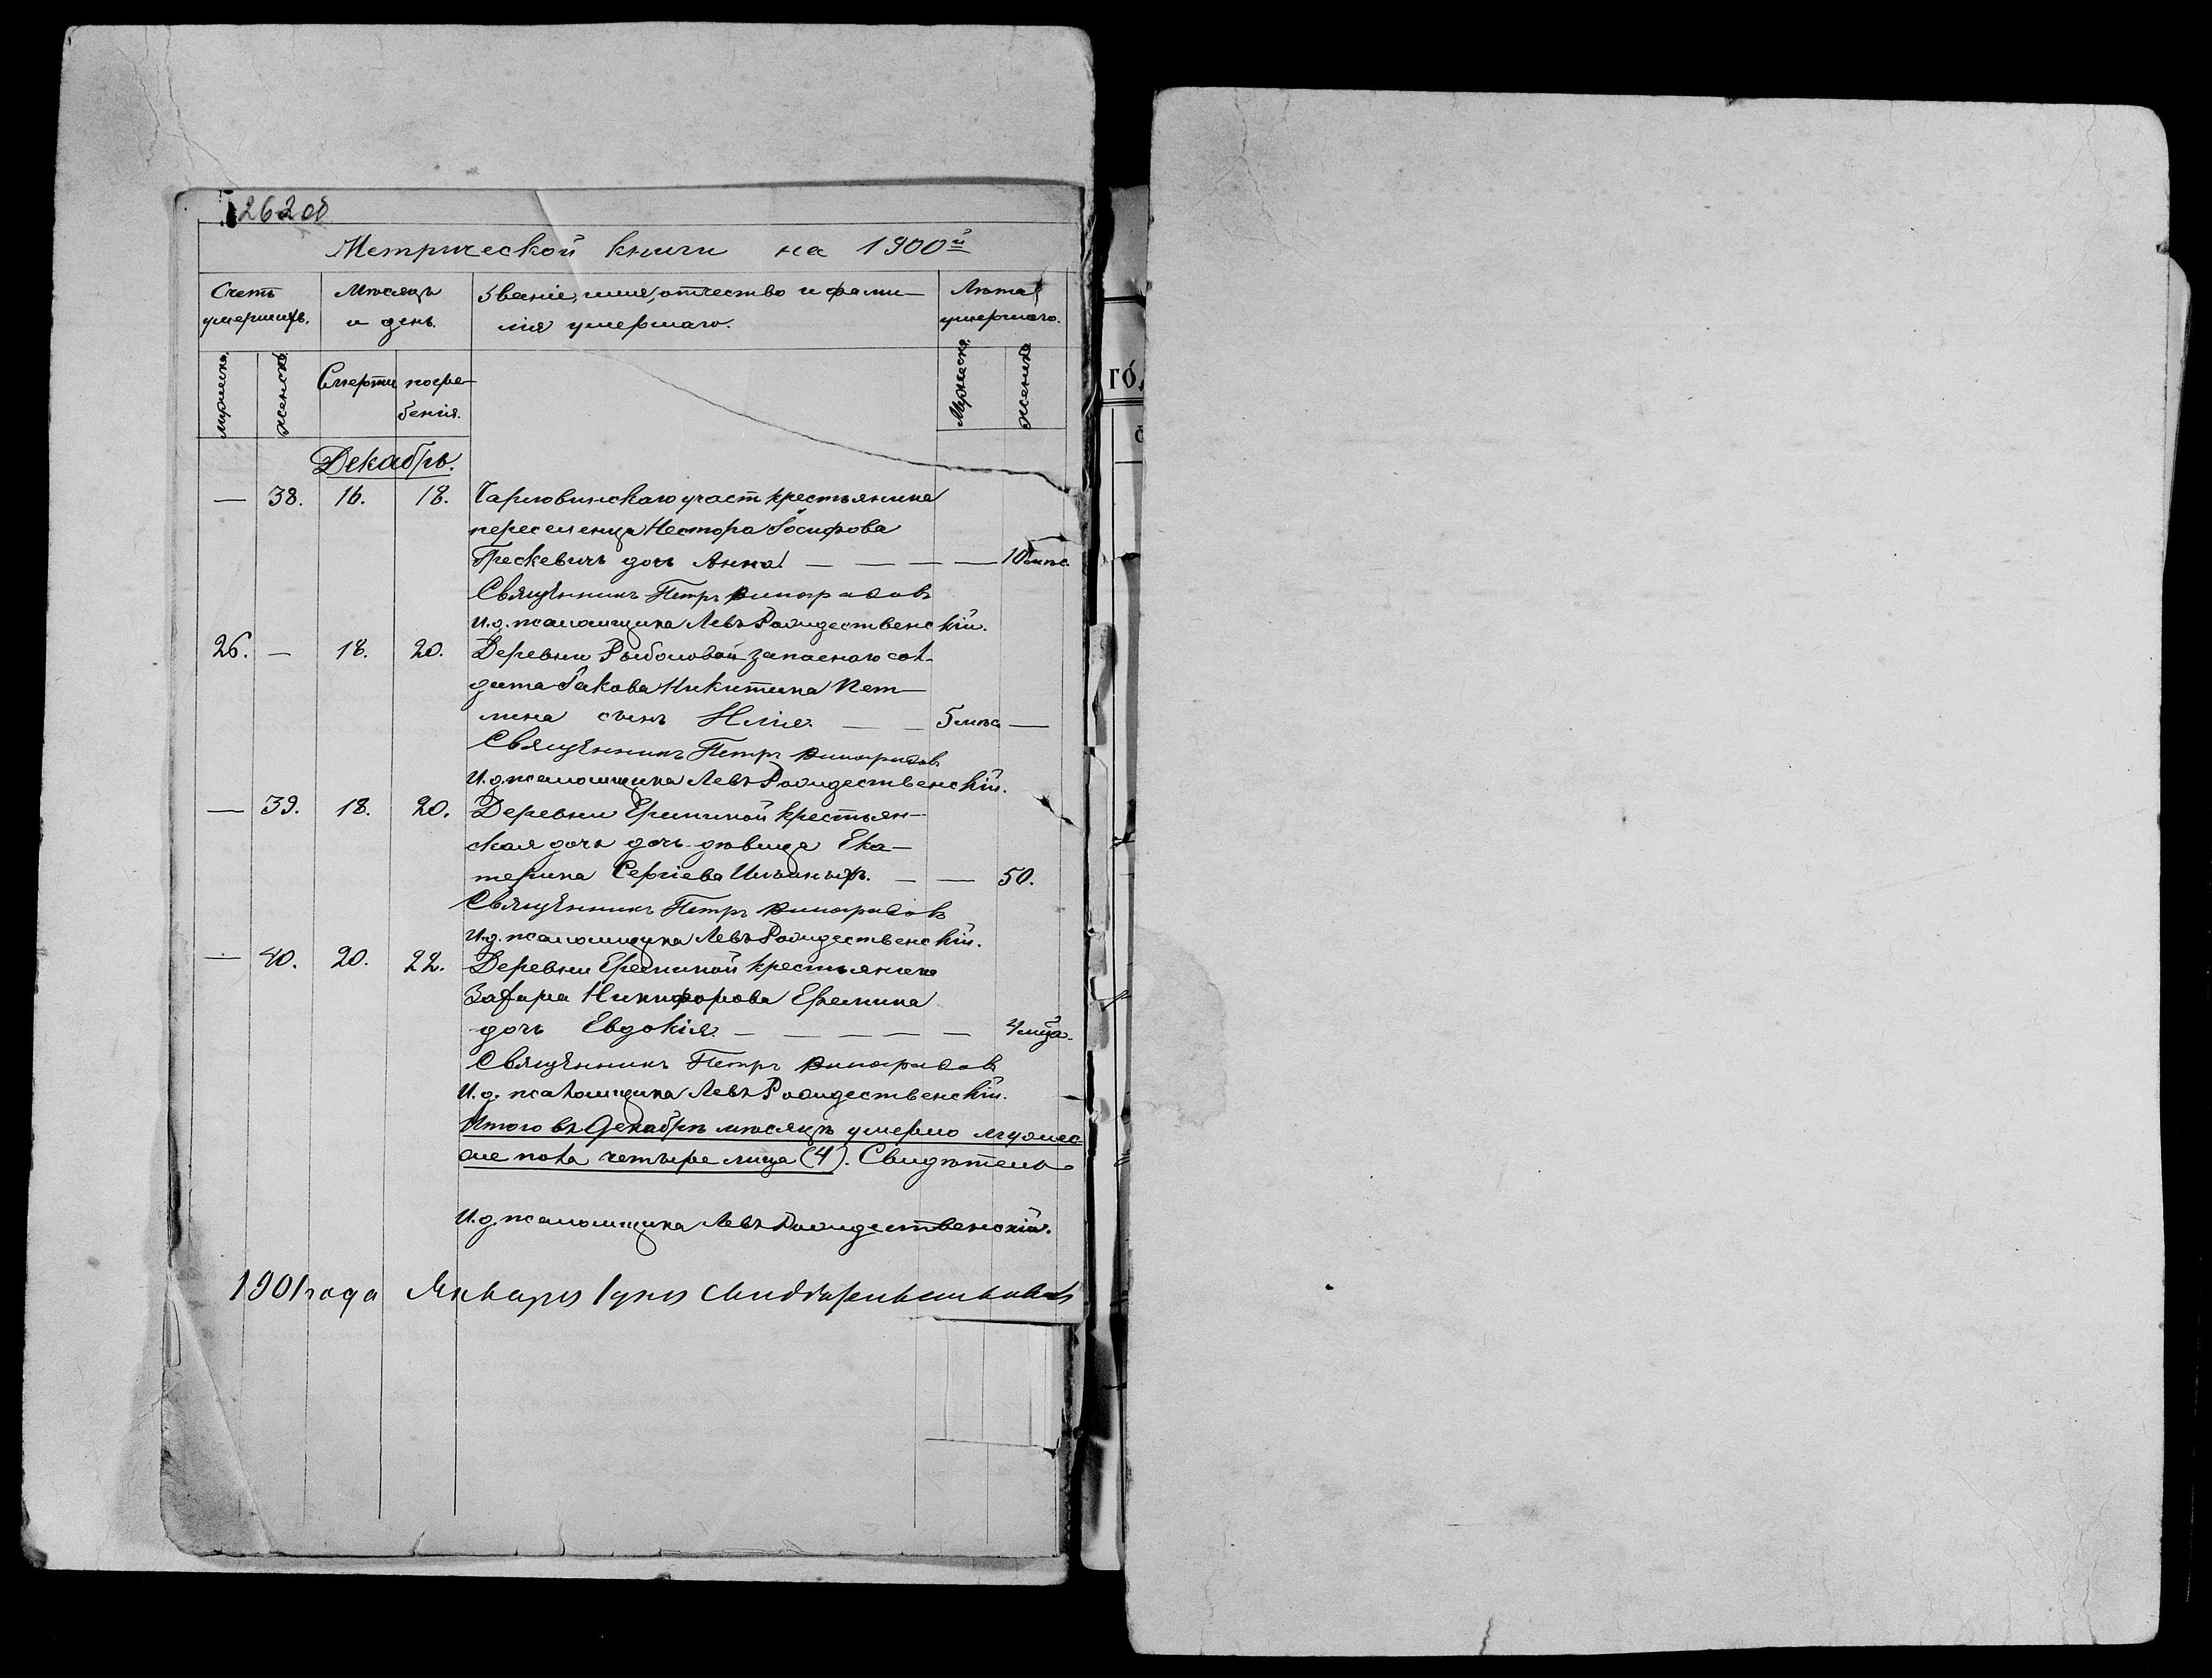 262об
Метрической книги на 1900й
Счетъ умершихъ. Мѣсяцъ и день. Званіе, имя, отчество и фами-
лія умершаго. Лѣта умершаго.
Мужеска. Женска. Смерти погре-
бенія. Мужеска. Женска
Декабрь.
— 38. 16. 18. участ крестьянина
переселенца Нестора Іосифова
дочь Анна. — — — — 10 мѣс.
Священникъ Петръ Виноградовъ
И.д. псаломщика Левъ Рождественскій.
26. — 18. 20. Деревни Рыболовой запаснаго сол-
дата Іакова Никитина Пет-
лина сынъ Илія. — — 5 мѣс —
Священникъ Петръ Виноградовъ
И.д. псаломщика Левъ Рождественскій.
— 39. 18. 20. Деревни Ереминой крестьян-
ская дочь дочь-дѣвица Ека-
терина Сергіева Ильиныхъ. — — 50.
Священникъ Петръ Виноградовъ
И.д. псаломщика Левъ Рождественскій.
— 40. 20. 22. Деревни Ереминой крестьянина
Захара Никифорова Еремина
дочь Евдокія. — — — — — 4 мца.
Священникъ Петръ Виноградовъ
И.д. псаломщика Левъ Рождественскій.
Итого въ Декабрѣ мѣсяцѣ умерло
пола четыре лица (4). Свидѣтель
И.д. псаломщика Левъ Рождественскій.
1901 года Января 1 дня
го
с